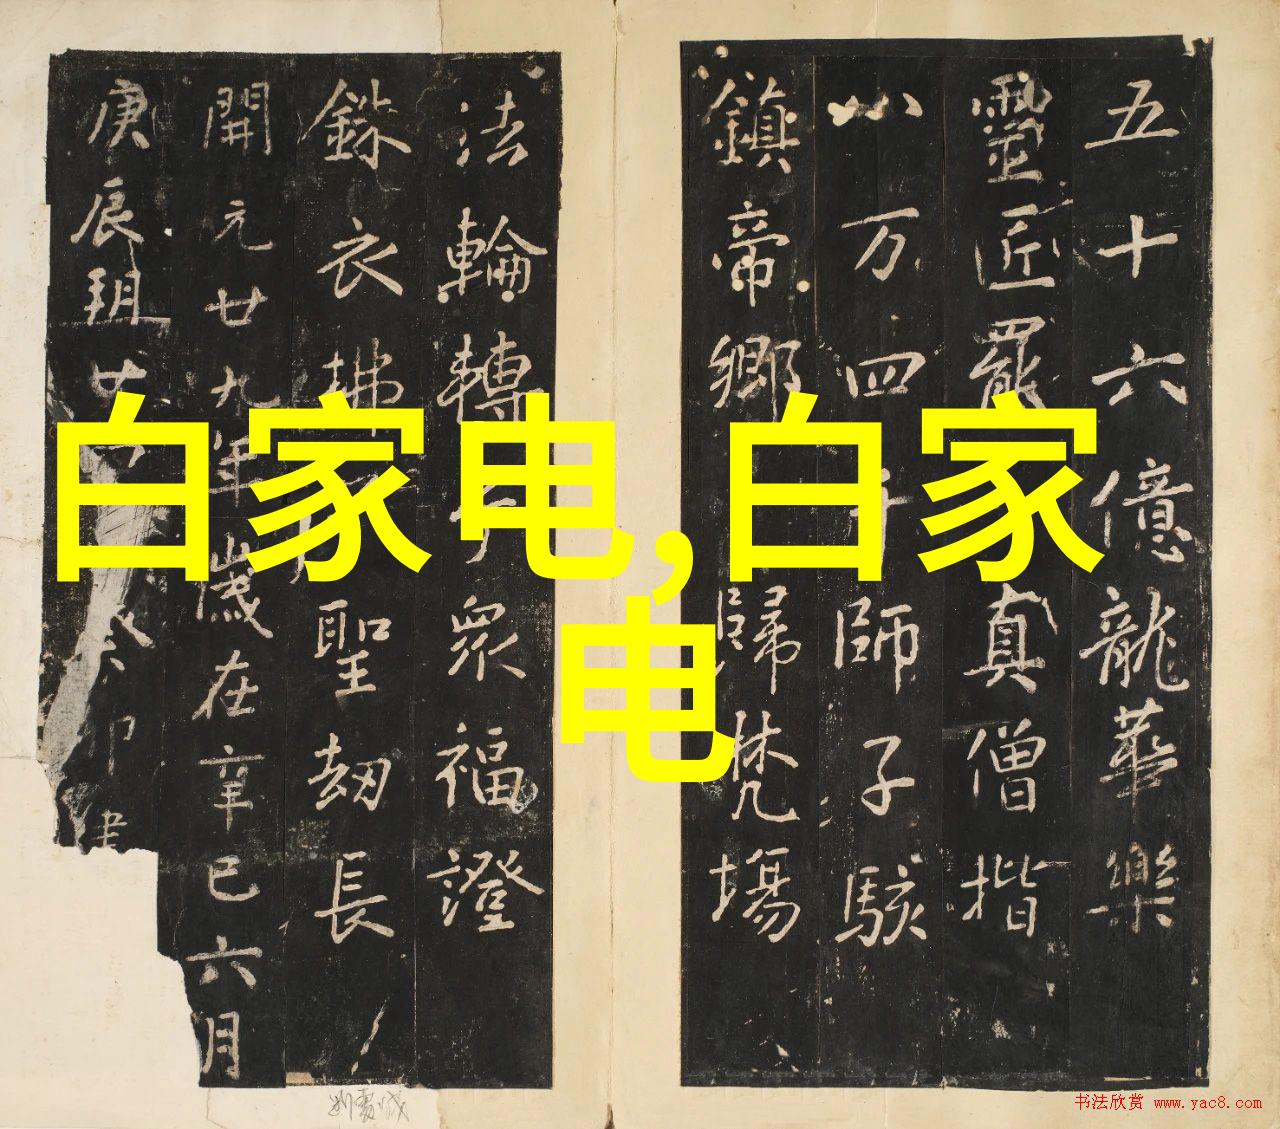 五十六億龍華樂
靈匠罷真僧揩
八万四千師子駭
鎮帝鄉歸梵場
法輪轉於眾福證
銖衣拂聖劫長
開元廿九年歲在辛巳六月
庚辰朔廿癸卯建
白家电,白家
电
书法欣赏 www.yac8.com